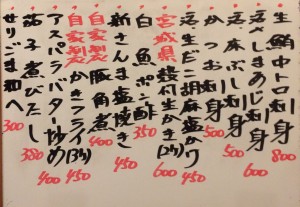 生鮪中トロ刺身 800
活〆しまあじ刺身 600
活〆かんぱち刺身 500
かつお刺身 500
活生だこ胡麻塩かけ 450
宮城県殻付生かき(2ケ) 600
白魚ポン酢 350
新さんま塩焼き 450
自家製豚角煮 400
自家製かきフライ(3ケ) 450
アスパラバター炒め 400
茄子煮びたし 380
せりごま和へ 300